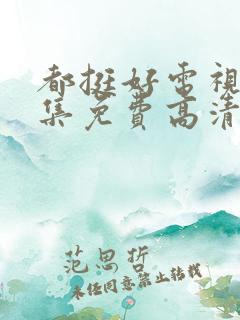 都挺好電視
集免費高清
范思哲
未経同意禁止轉載